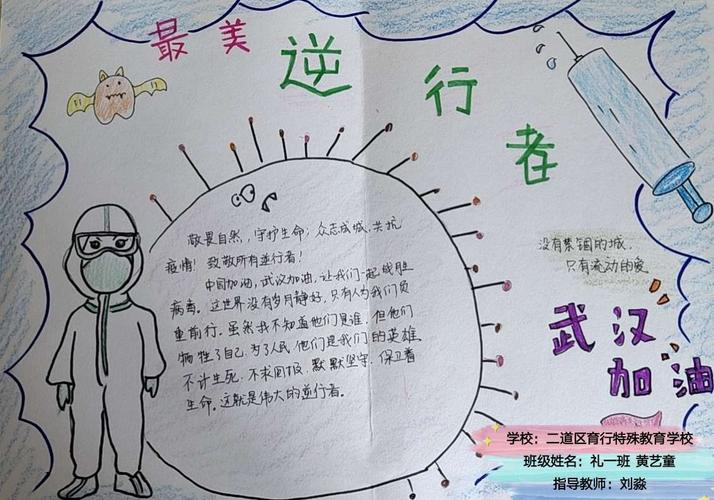 最美逆行者
敬畏自然,守护生命;众志成城,共抗
疫情!致敬所有逆行者!
中国加油,武汉加油,让我们一起战胜
病毒。这世界没有岁月静好,只有人为我们负
重前行。虽然我不知道他们是谁,但他们
牺牲了自己,为了人民,他们是我们的英雄。
不计生死,不求回报,默默坚守,保卫着
生命。这就是伟大的逆行者。
没有禁锢的城,
只有流动的爱。
武汉
加油
学校:二道区育行特殊教育学校
班级姓名:礼一班 黄艺童
指导教师:刘淼